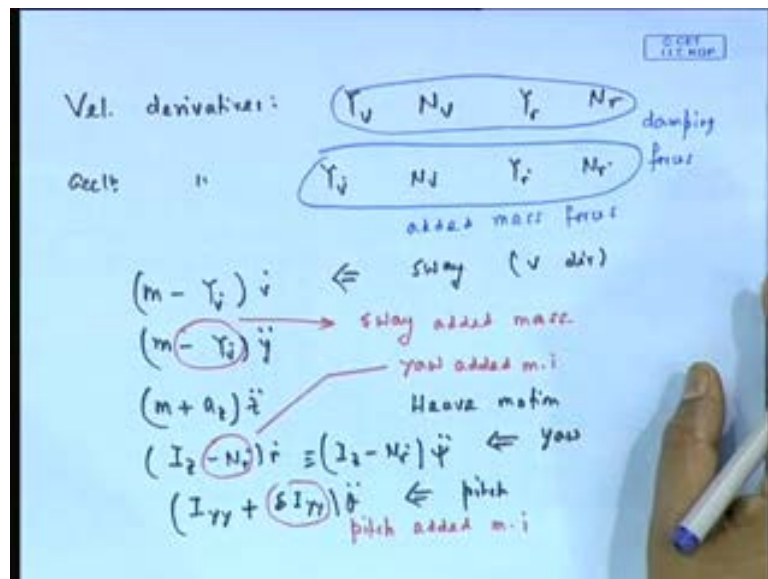 © CET
I.I.T. KGP
Vel. derivatives: Y_v N_v Y_r N_r
damping forces
Accln " Y_v̇ N_v̇ Y_ṙ N_ṙ
added mass forces
(m - Y_v̇) v̇ ⇐ sway (v dir)
(m - Y_v̇) ÿ → sway added mass
yaw added m.i
(m + a_z) z̈ Heave motion
(I_z - N_ṙ) ṙ ≡ (I_z - N_ṙ) ψ̈ ⇐ yaw
(I_yy + δI_yy) θ̈ ⇐ pitch
pitch added m.i